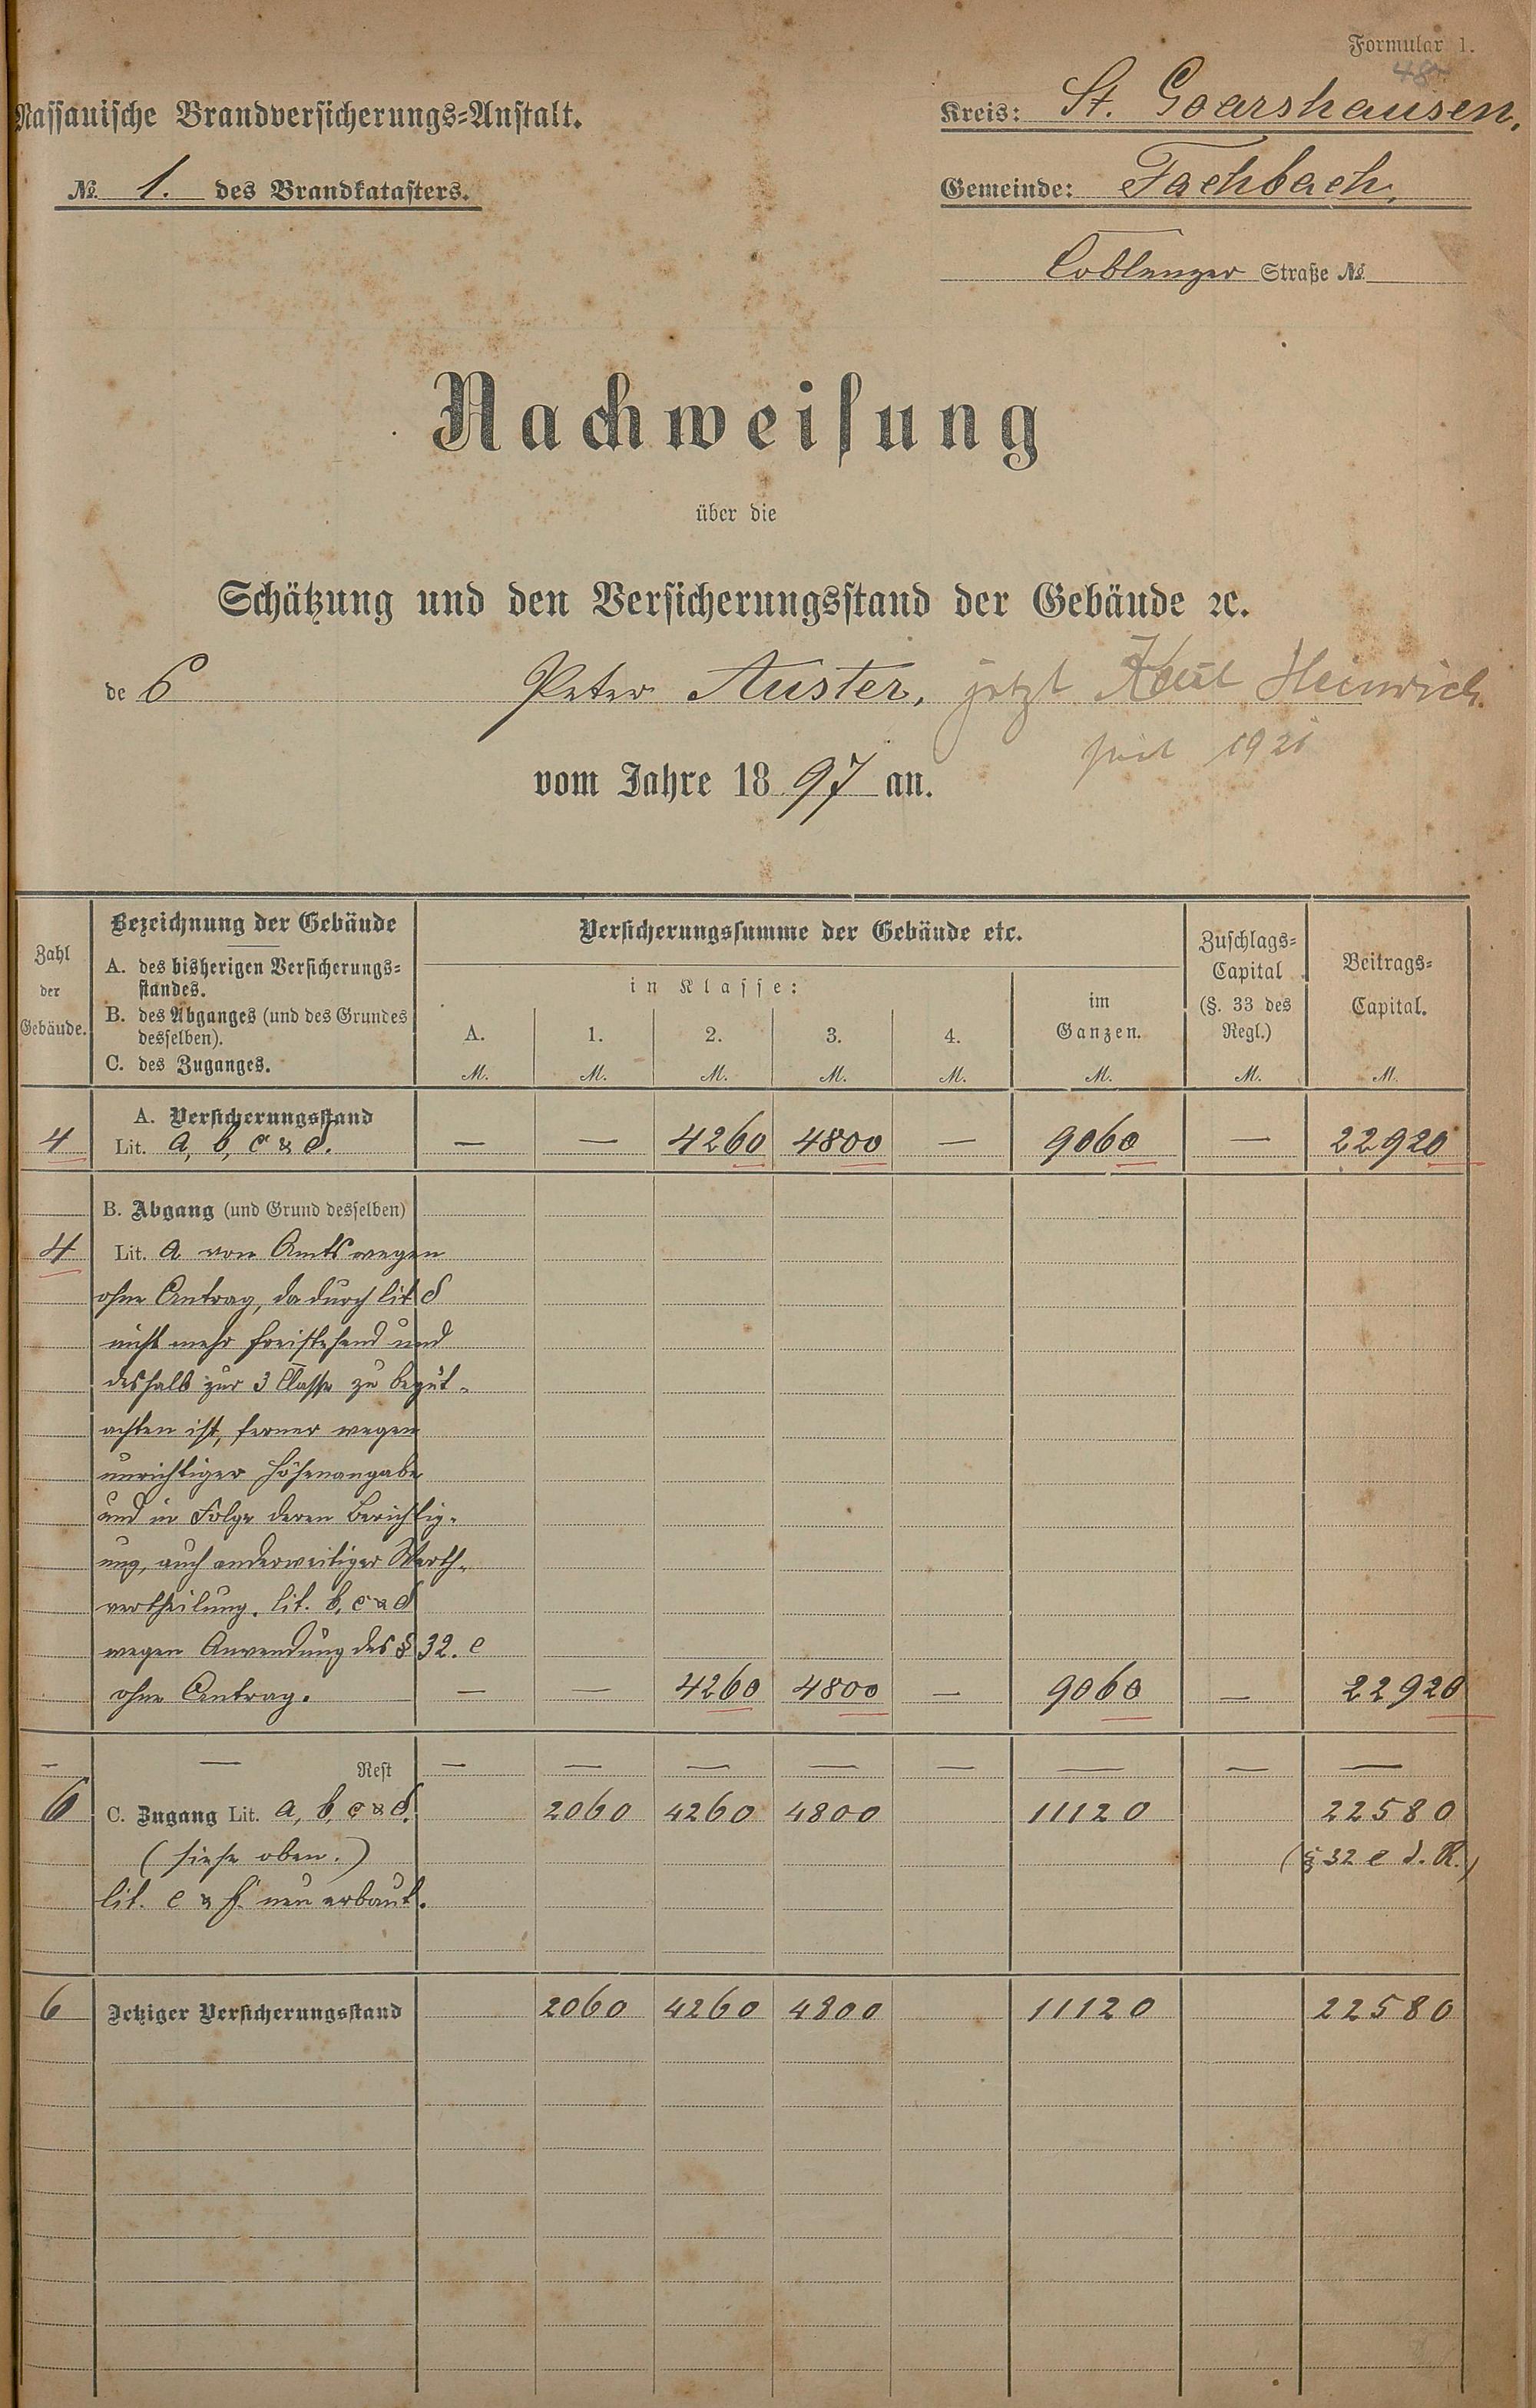 Formular 1.
48
Nassauische Brandversicherungs-Anstalt.
Kreis: St. Goarshausen,
№ 1. des Brandkatasters.
Gemeinde: Fachbach,
Coblenzer Straße №
Nachweisung
über die
Schätzung und den Versicherungsstand der Gebäude ꝛc.
de s Peter Auster, jetzt Heinrich
seit 1921
vom Jahre 1897 an.
Zahl der Gebäude.
Bezeichnung der Gebäude
A. des bisherigen Versicherungs=
standes.
B. des Abganges (und des Grundes
desselben).
C. des Zuganges.
Versicherungssumme der Gebäude etc.
in Klasse:
A. 1. 2. 3. 4.
im Ganzen.
Zuschlags=
Capital
(§. 33 des
Regl.)
Beitrags=
Capital.
M. M. M. M. M. M. M. M.
A. Versicherungsstand
4 Lit. a, b, c & d. — — 4260 4800 — 9060 — 22920
B. Abgang (und Grund desselben)
4 Lit. a von Amtswegen
ohne Antrag, da durch lit d
nicht mehr freistehend und
deshalb zur 3 Classe zu begut-
achten ist, ferner wegen
unrichtiger Höhenangabe
und in Folge deren Berichtig-
ung, auch anderweitiger Werth-
vertheilung. lit. b, c & d
wegen Anwendung des § 32. e
ohne Antrag. — — 4260 4800 — 9060 — 22920
— — Rest — — — — — — — —
6 C. Zugang Lit. a, b, c & d. 2060 4260 4800 11120 22580
(siehe oben.) (§ 32 e d. R.)
lit. e & f. neu erbaut.
6 Jetziger Versicherungsstand 2060 4260 4800 11120 22580